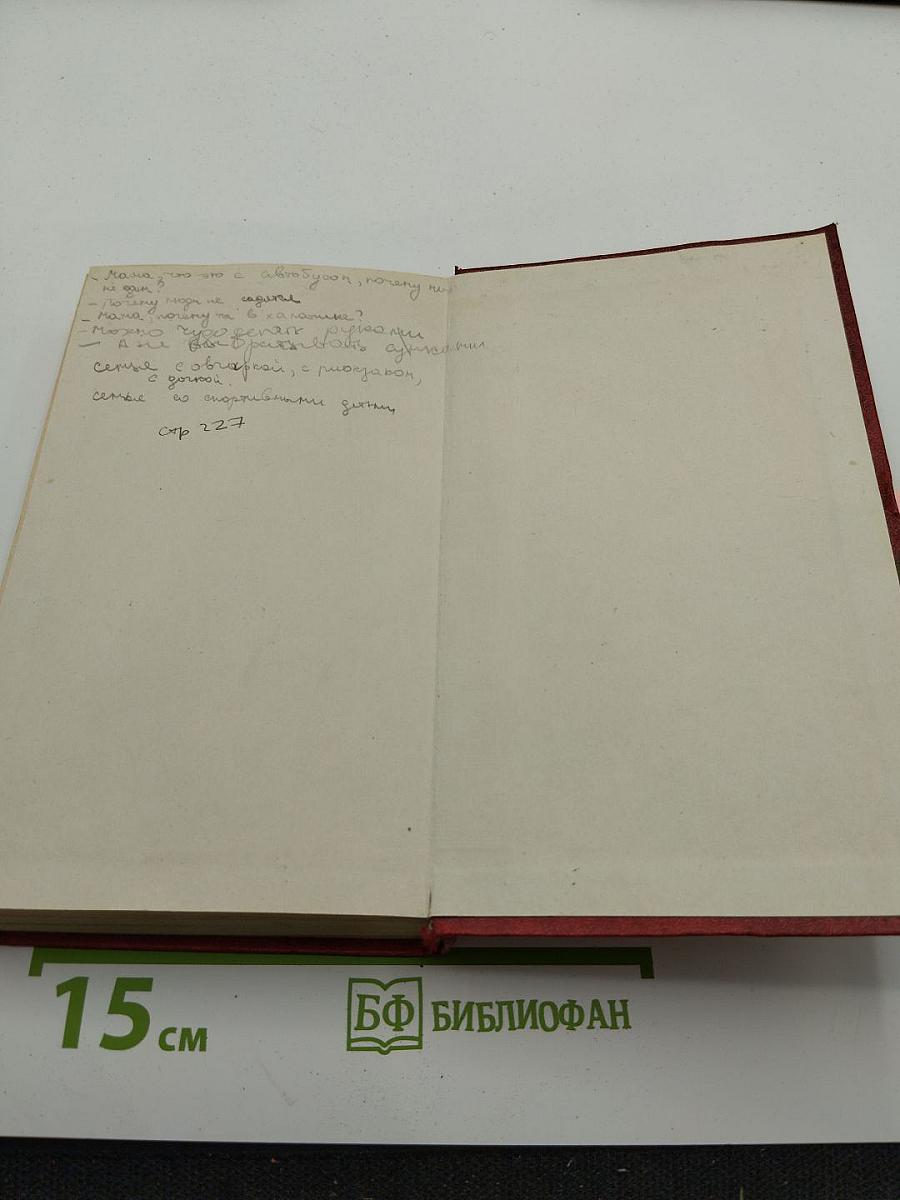 - Мама, что это с автобусом, почему
не едем?
- Почему люди не садятся
- Мама, почему та в халатике?
- Можно чудо делать руками
- А не выбрасывать
семья с овчаркой, с рюкзаком,
с дочкой.
семья со спортивными детьми
стр 227
15 см
БФ БИБЛИОФАН